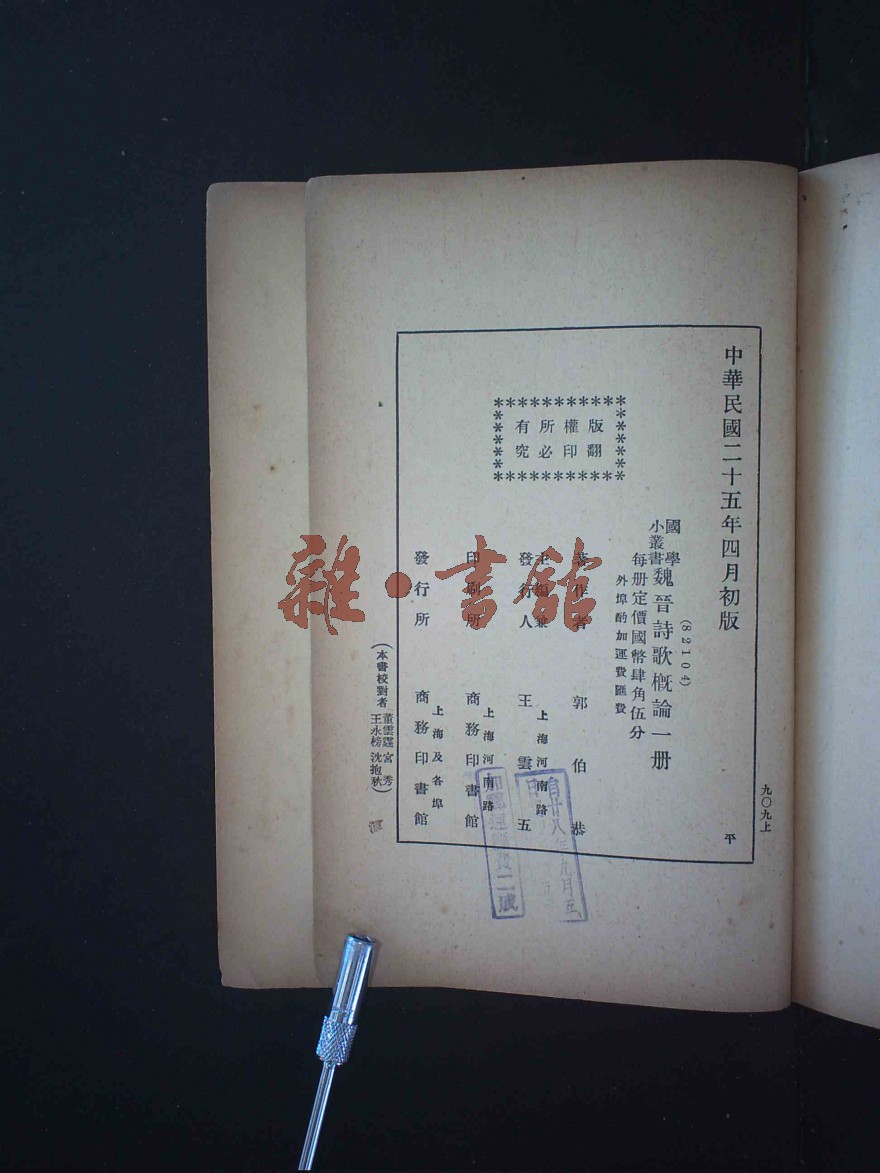 中華民國二十五年四月初版
(82104)
國學
小叢書
魏晉詩歌概論一册
每册定價國幣肆角伍分
外埠酌加運費匯費
版權所有
翻印必究
著作者 郭伯恭
主編兼
發行人
上海河南路
王雲五
印刷所
上海河南路
商務印書館
發行所
上海及各埠
商務印書館
(本書校對者
董雲霆 宮秀
王永榜 沈抱秋)
九〇九上
平
自廿八年九月五
日
加運費二成
雜·書館